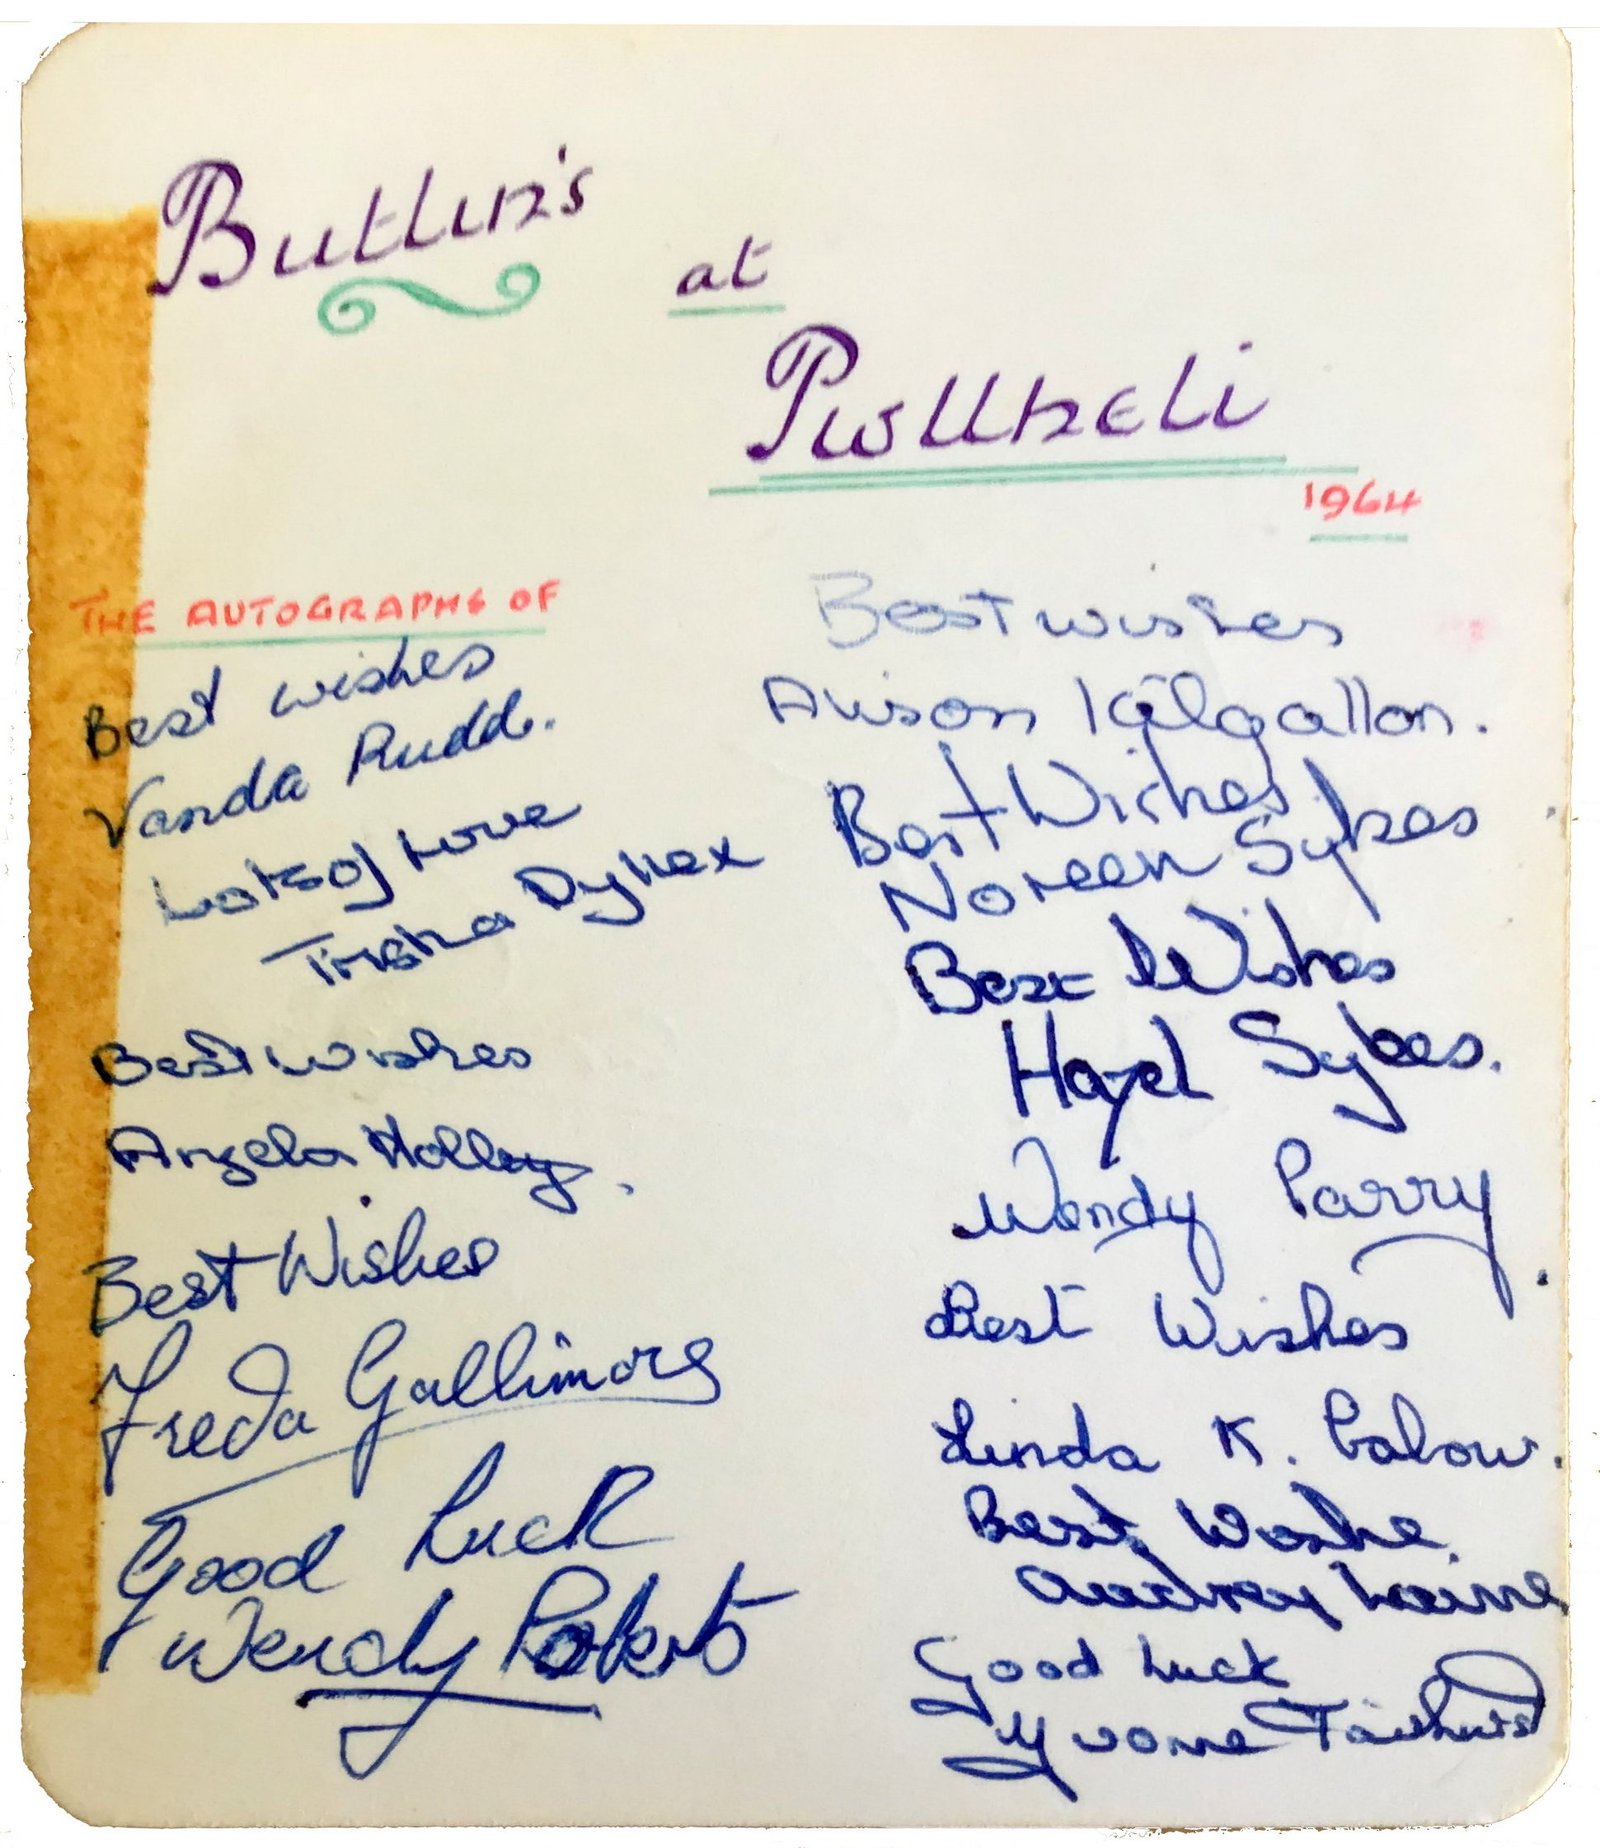 Butlin's
at
Pwllheli
1964
THE AUTOGRAPHS OF
Best wishes
Vanda Rudd.
Lots of Love
Trisha
Best wishes
Angela Holley.
Best Wishes
Freda Gallimore
Good Luck
Wendy Roberts
Best wishes
Alison Kilgallon.
Best Wishes
Noreen Sykes
Best Wishes
Hazel Sykes.
Wendy Parry.
Best Wishes
Linda K.
Best
Audrey
Good Luck
Yvonne